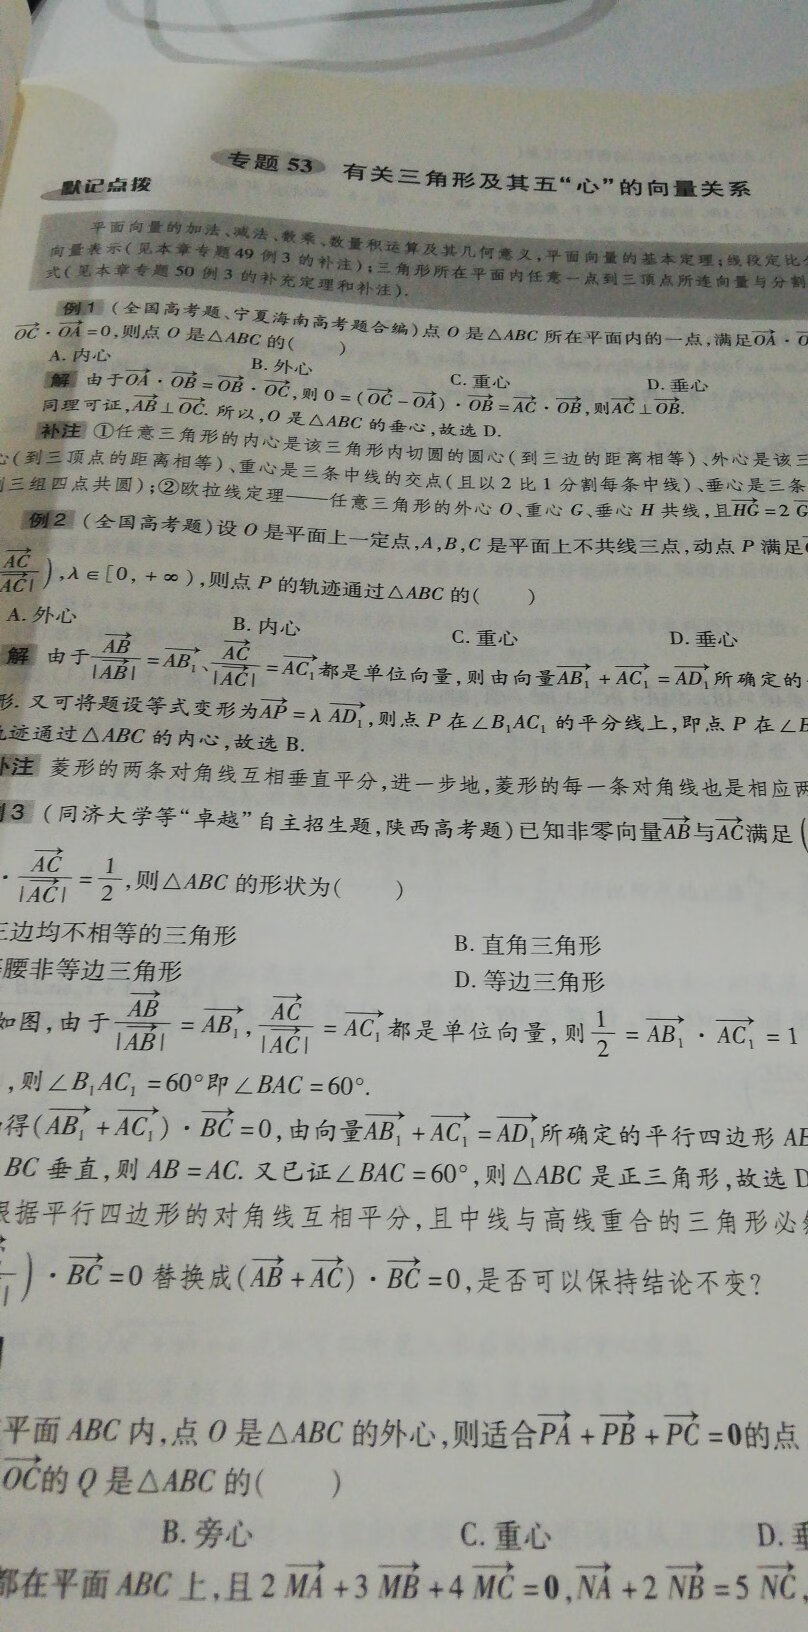 专题 53 有关三角形及其五“心”的向量关系
默记点拨
平面向量的加法、减法、数乘、数量积运算及其几何意义,平面向量的基本定理;线段定比
向量表示(见本章专题 49 例 3 的补注);三角形所在平面内任意一点到三顶点所连向量与分割
式(见本章专题 50 例 3 的补充定理和补注).
例 1 (全国高考题、宁夏海南高考题合编)点 O 是△ABC 所在平面内的一点,满足OA·
OC·OA=0,则点 O 是△ABC 的( )
A. 内心 B. 外心 C. 重心 D. 垂心
解 由于OA·OB=OB·OC,则 0=(OC-OA)·OB=AC·OB,则AC⊥OB.
同理可证,AB⊥OC. 所以,O 是△ABC 的垂心,故选 D.
补注 ①任意三角形的内心是该三角形内切圆的圆心(到三边的距离相等)、外心是该三
心(到三顶点的距离相等)、重心是三条中线的交点(且以 2 比 1 分割每条中线)、垂心是三条
三组四点共圆);②欧拉线定理——任意三角形的外心 O、重心 G、垂心 H 共线,且HG=2
例 2 (全国高考题)设 O 是平面上一定点,A,B,C 是平面上不共线三点,动点 P 满足
AC/|AC|),λ∈[0,+∞),则点 P 的轨迹通过△ABC 的( )
A. 外心 B. 内心 C. 重心 D. 垂心
解 由于AB/|AB|=AB₁、AC/|AC|=AC₁都是单位向量,则由向量AB₁+AC₁=AD₁所确定的
形. 又可将题设等式变形为AP=λAD₁,则点 P 在∠B₁AC₁ 的平分线上,即点 P 在∠
迹通过△ABC 的内心,故选 B.
补注 菱形的两条对角线互相垂直平分,进一步地,菱形的每一条对角线也是相应两
例 3 (同济大学等“卓越”自主招生题,陕西高考题)已知非零向量AB与AC满足(
·AC/|AC|=1/2,则△ABC 的形状为( )
三边均不相等的三角形 B. 直角三角形
等腰非等边三角形 D. 等边三角形
如图,由于AB/|AB|=AB₁,AC/|AC|=AC₁都是单位向量,则1/2=AB₁·AC₁=1
,则∠B₁AC₁=60°即∠BAC=60°.
得(AB₁+AC₁)·BC=0,由向量AB₁+AC₁=AD₁所确定的平行四边形
BC 垂直,则 AB=AC. 又已证∠BAC=60°,则△ABC 是正三角形,故选 D
根据平行四边形的对角线互相平分,且中线与高线重合的三角形必
)·BC=0 替换成(AB+AC)·BC=0,是否可以保持结论不变?
平面 ABC 内,点 O 是△ABC 的外心,则适合PA+PB+PC=0的点
OC的 Q 是△ABC 的( )
B. 旁心 C. 重心 D. 垂
都在平面 ABC 上,且 2MA+3MB+4MC=0,NA+2NB=5NC,